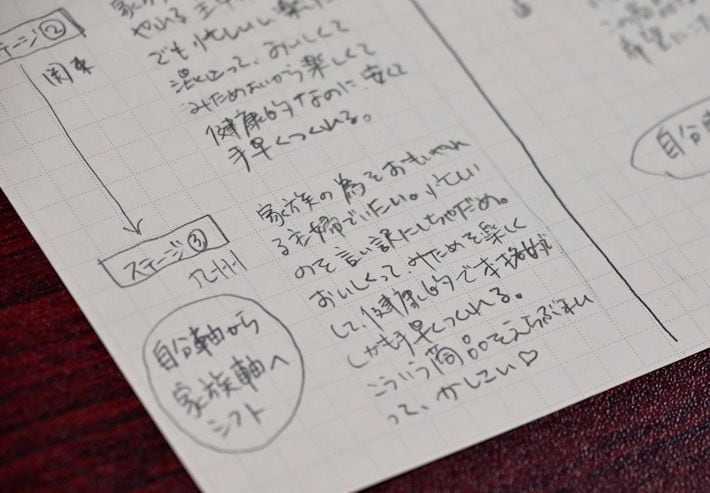 ステージ②
関東
でも忙しい
みためもいいから楽しくて
健康的なのに、安くて
手早くつくれる。
ステージ③
九州
自分軸から
家族軸へ
シフト
家族の為をおもいやれ
る主婦でいたい。忙しい
のを言い訳にしちゃだめ。
おいしくって、みためも楽しく
して、健康的で本格的で
しかも手早くつくれる。
こういう商品をえらぶわたし
って、かしこい♡
自分